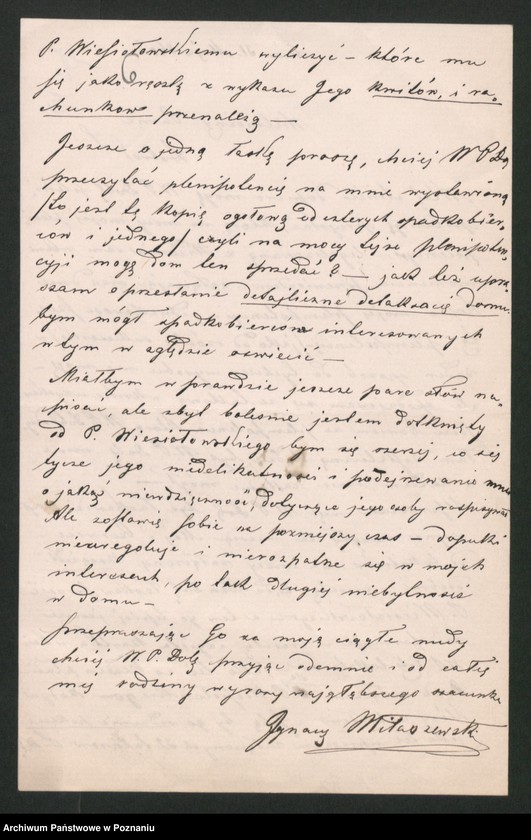 P. Wiesiołowskiemu wyliczyć – które mu
się jako resztę z wykazu Jego kwitów, i ra-
chunków przenależą –
Jeszcze o jedną łaskę proszę, chciej W P Dobr
przeczytać plenipotencię na mnie wystawioną
/to jest tę kopię ogółową od czterech spadkobier-
ców i jednego/ czyli na mocy tejże plenipoten-
cyji mogę dom ten sprzedać? – jak też upra-
szam o przesłanie detajliczne detaksacię domu
bym mógł spadkobierców interesowanych
w tym względzie oświecić –
Miałbym wprawdzie jeszcze parę słów na-
pisać, ale zbyt boleśnie jestem dotknięty
od P. Wiesiołowskiego bym się szerzej, co się
tycze jego niedelikatności i podejrzewania mnie
o jakąś niewdzięczność dotyczące jego osoby rozpisywał
Ale zostawię sobie na poźniejszy czas – dopóki
nieureguluję i nierozpatrzę się w moich
interesach, po tak długiej niebytności
w domu –
Przepraszając Go za moją ciągłe nudy
chciej W. P. Dobr przyjąć odemnie i od całej
mej rodziny wyrazy najgłębszego szacunku
Ignacy Miłaszewski
Archiwum Państwowe w Poznaniu